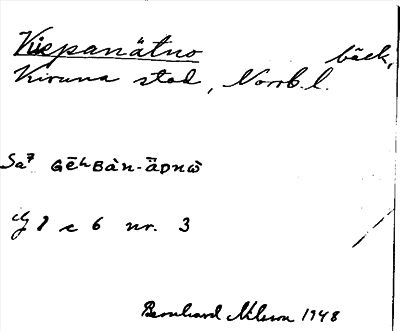 Kiepanätno bäck,
Kiruna stad, Norrb. l.
Sa⁷ GēʰBàn-äDnὼ
J 1 c 6 nr. 3
Bernhard Nilsson 1948